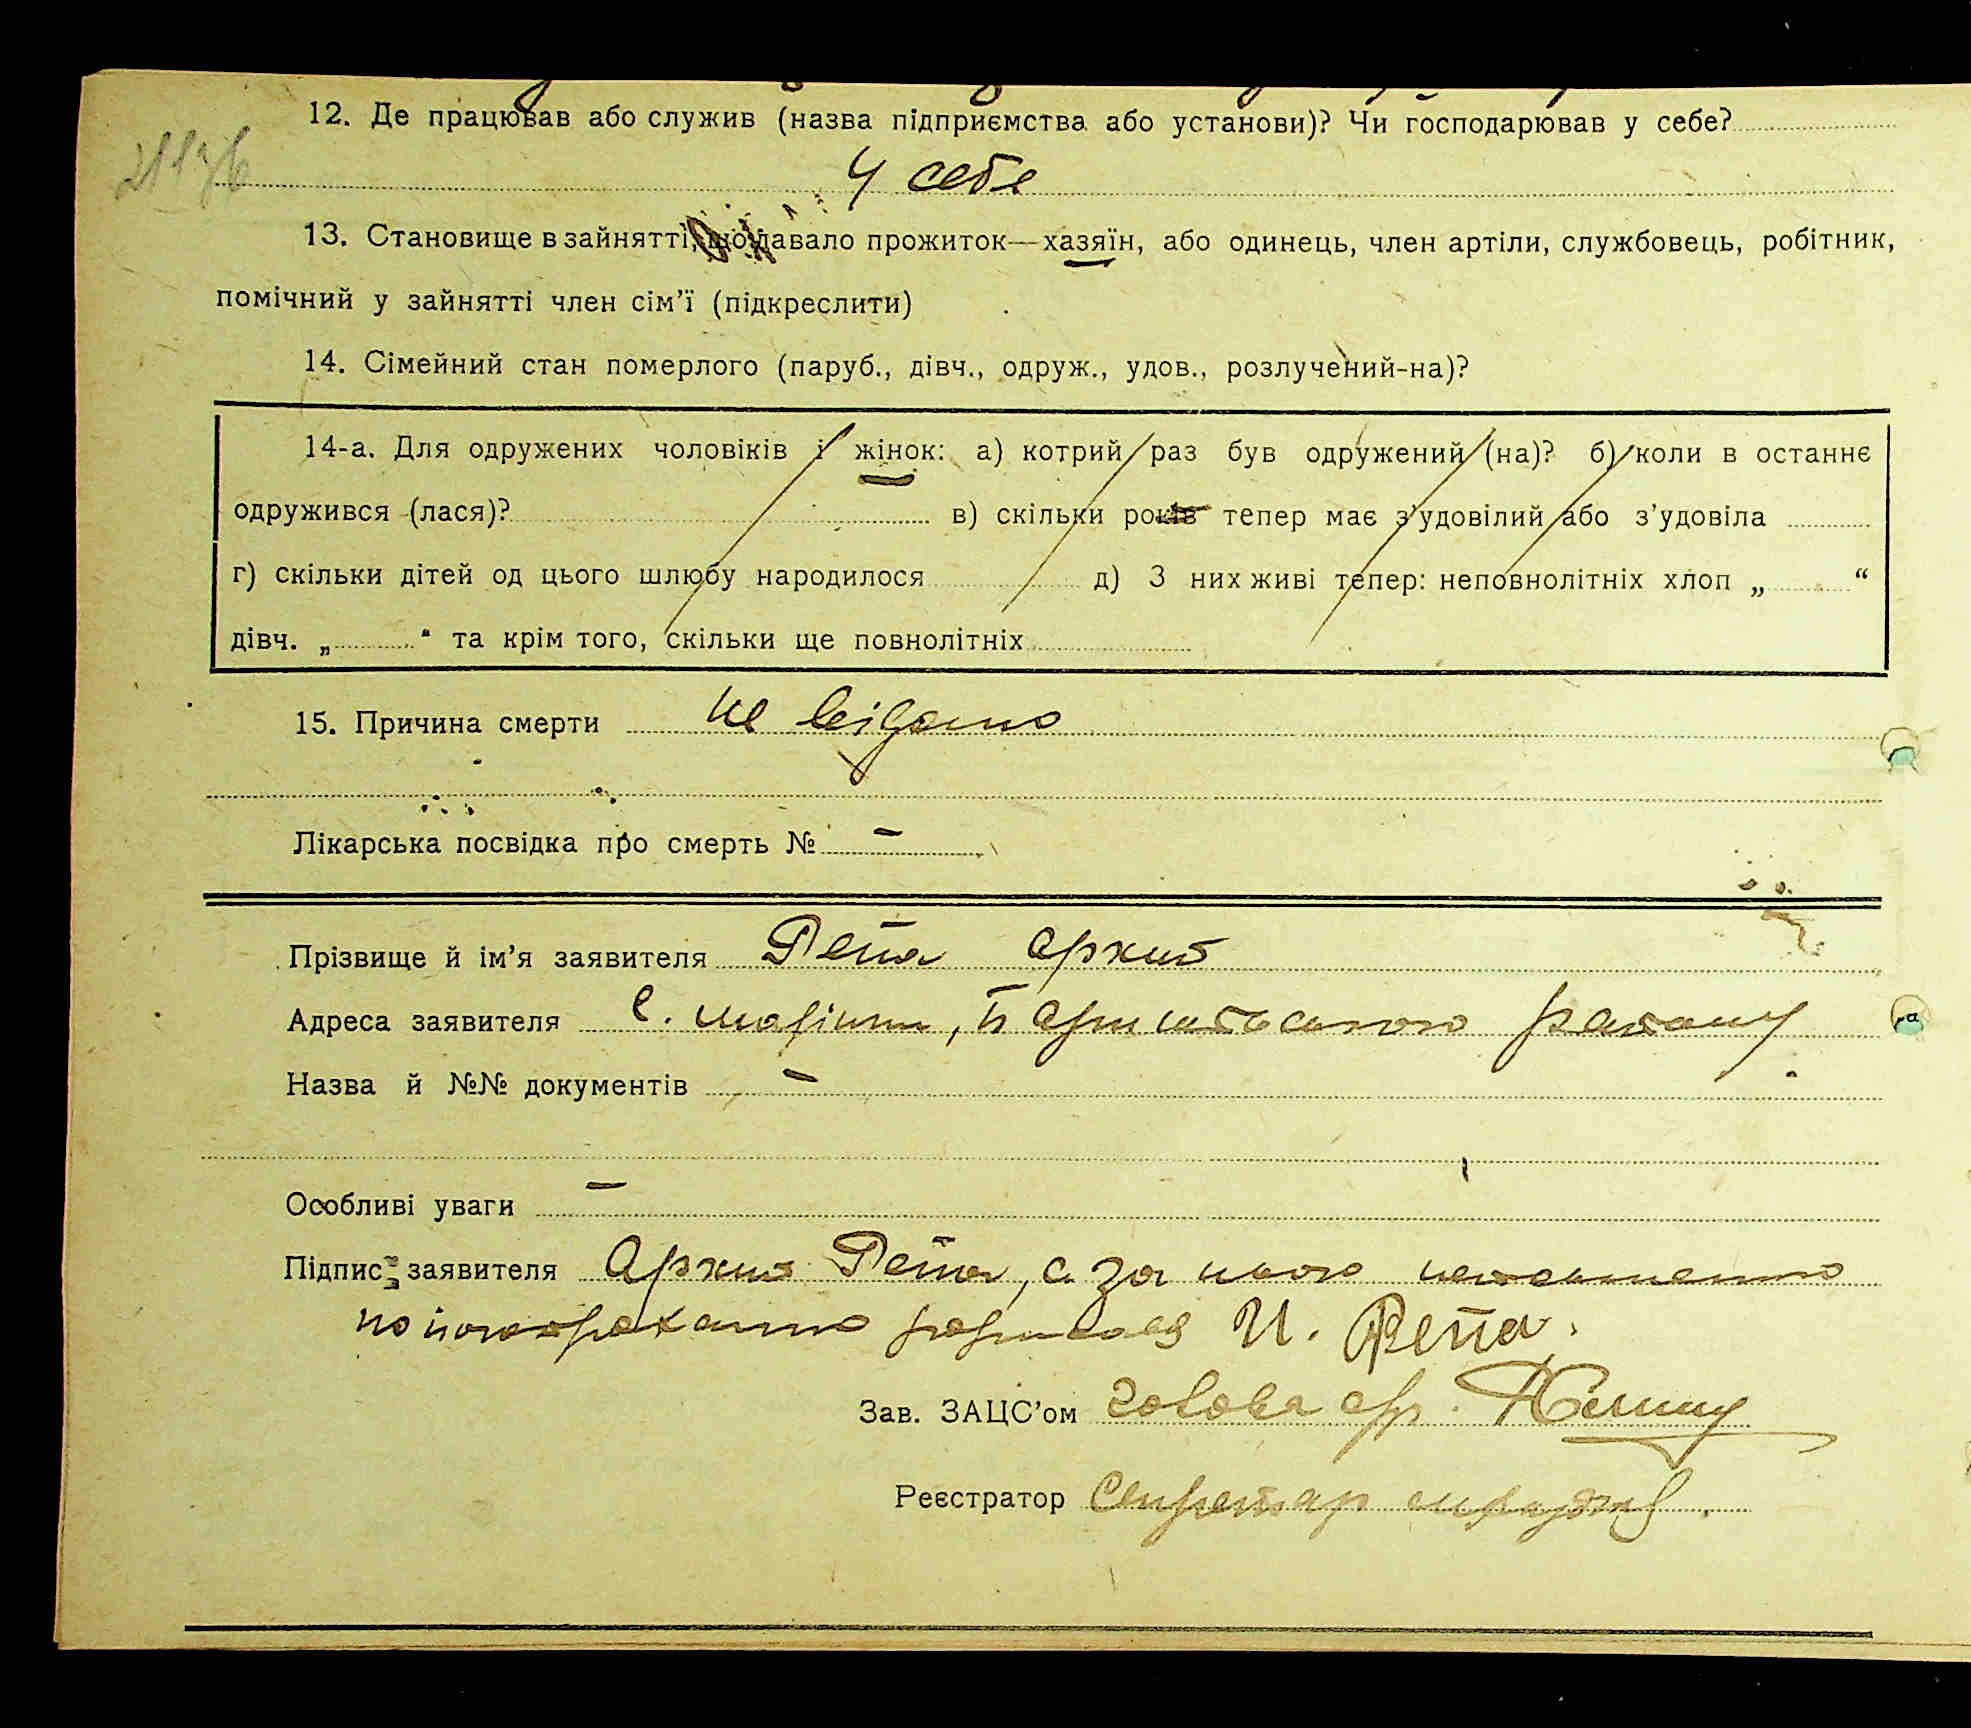 12. Де працював або служив (назва підприємства або установи)? Чи господарював у себе?
У себе
13. Становище в зайнятті, що давало прожиток—хазяїн, або одинець, член артіли, службовець, робітник,
помічний у зайнятті член сім’ї (підкреслити)
14. Сімейний стан померлого (паруб., дівч., одруж., удов., розлучений-на)?
14-а. Для одружених чоловіків і жінок: а) котрий раз був одружений (на)? б) коли в останнє
одружився (лася)? в) скільки років тепер має з’удовілий або з’удовіла
г) скільки дітей од цього шлюбу народилося д) З них живі тепер: неповнолітніх хлоп „ “
дівч. „ “ та крім того, скільки ще повнолітніх
15. Причина смерти не відомо
Лікарська посвідка про смерть № —
Прізвище й ім’я заявителя Репа Архип
Адреса заявителя с. району
Назва й №№ документів —
Особливі уваги —
Підпис заявителя Архип Репа, а за нього неписьменного
по його проханню розписався И. Репа.
Зав. ЗАЦС’ом Голова с/р.
Реєстратор Секретар